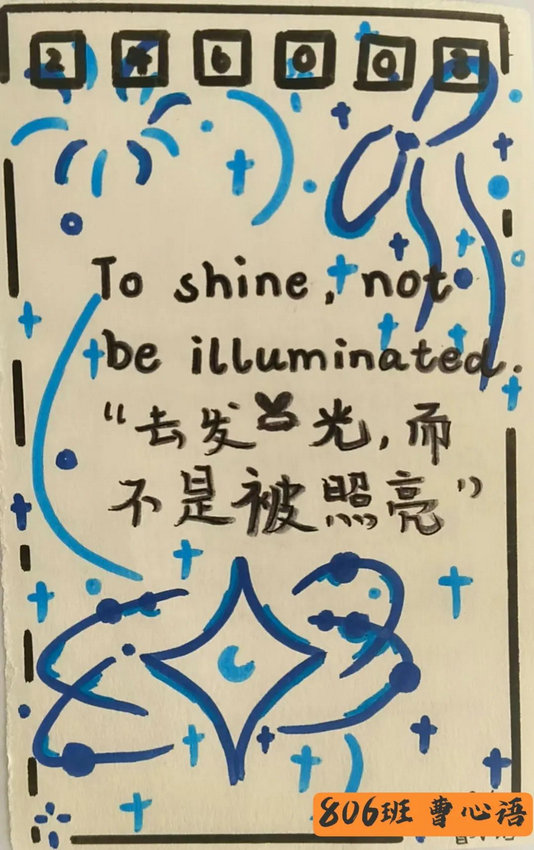 246003
To shine, not
be illuminated.
“去发光，而
不是被照亮”
806班 曹心语